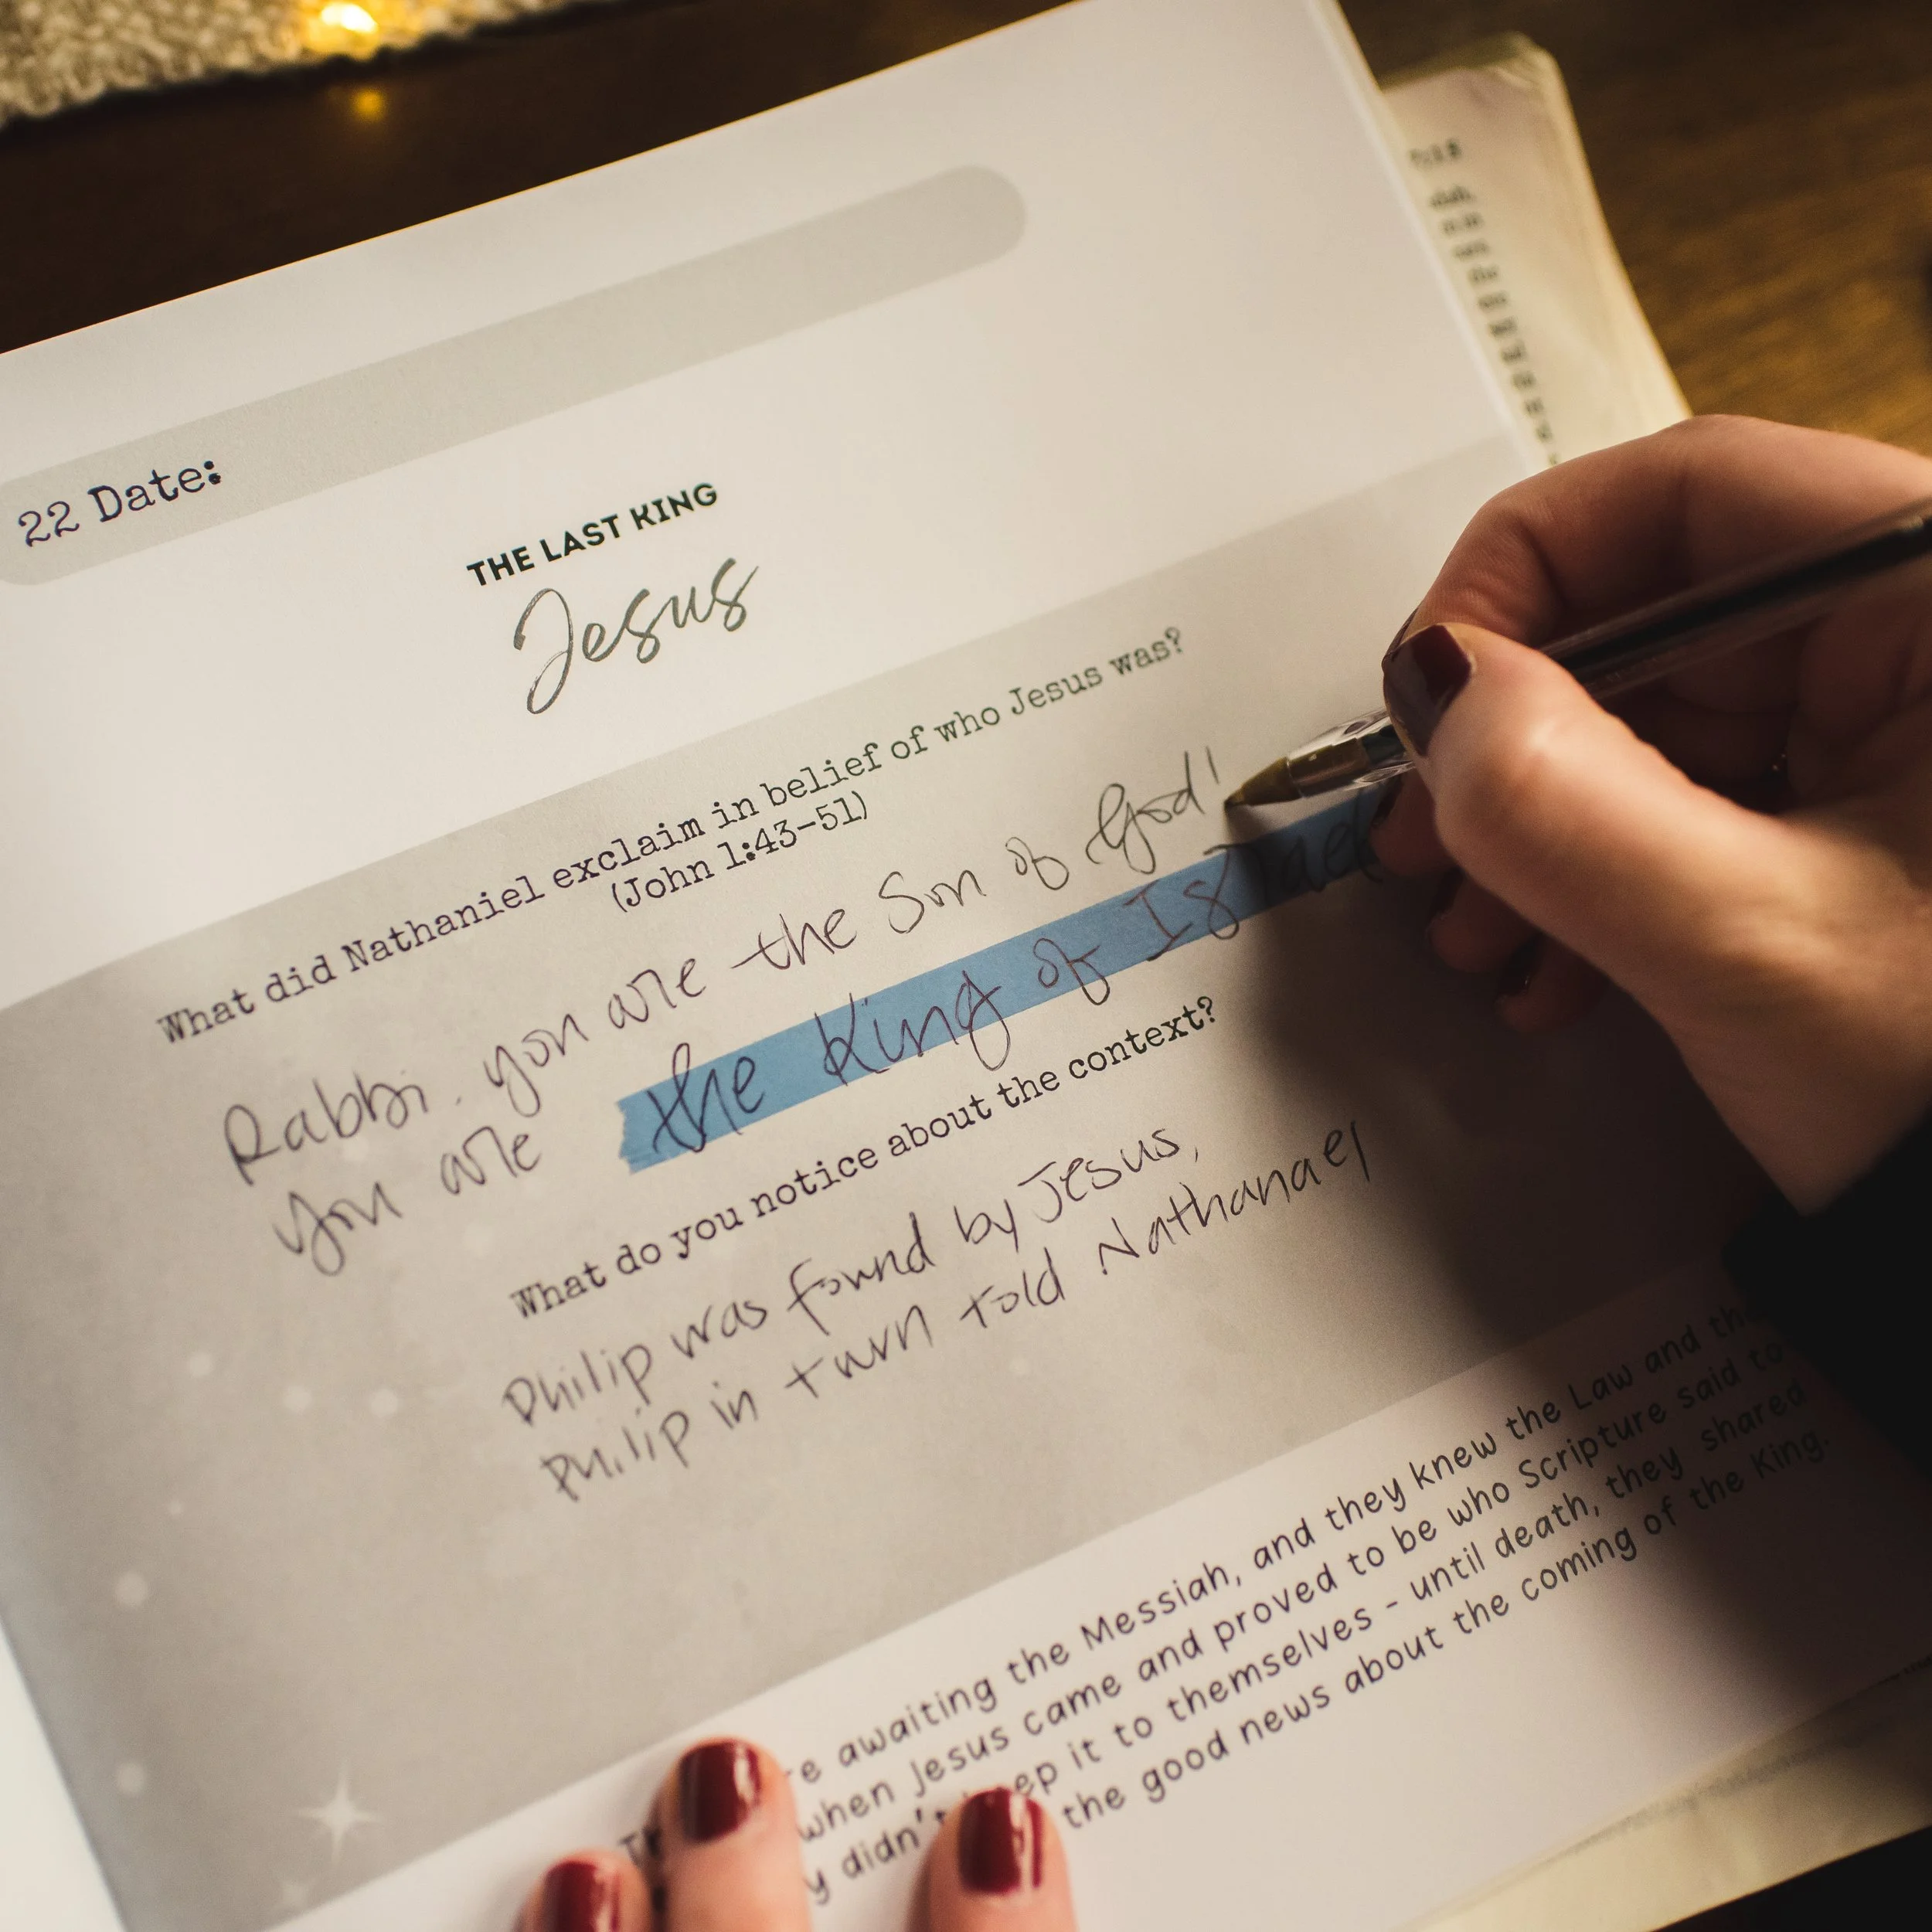 22 Date:
THE LAST KING
Jesus
What did Nathaniel exclaim in belief of who Jesus was?
(John 1:43-51)
Rabbi, you are the Son of God!
you are the King of Israel
What do you notice about the context?
Philip was found by Jesus,
Philip in turn told Nathanael
awaiting the Messiah, and they knew the Law and
when Jesus came and proved to be who Scripture said to
didn't it to themselves - until death, they shared
the good news about the coming of the King.